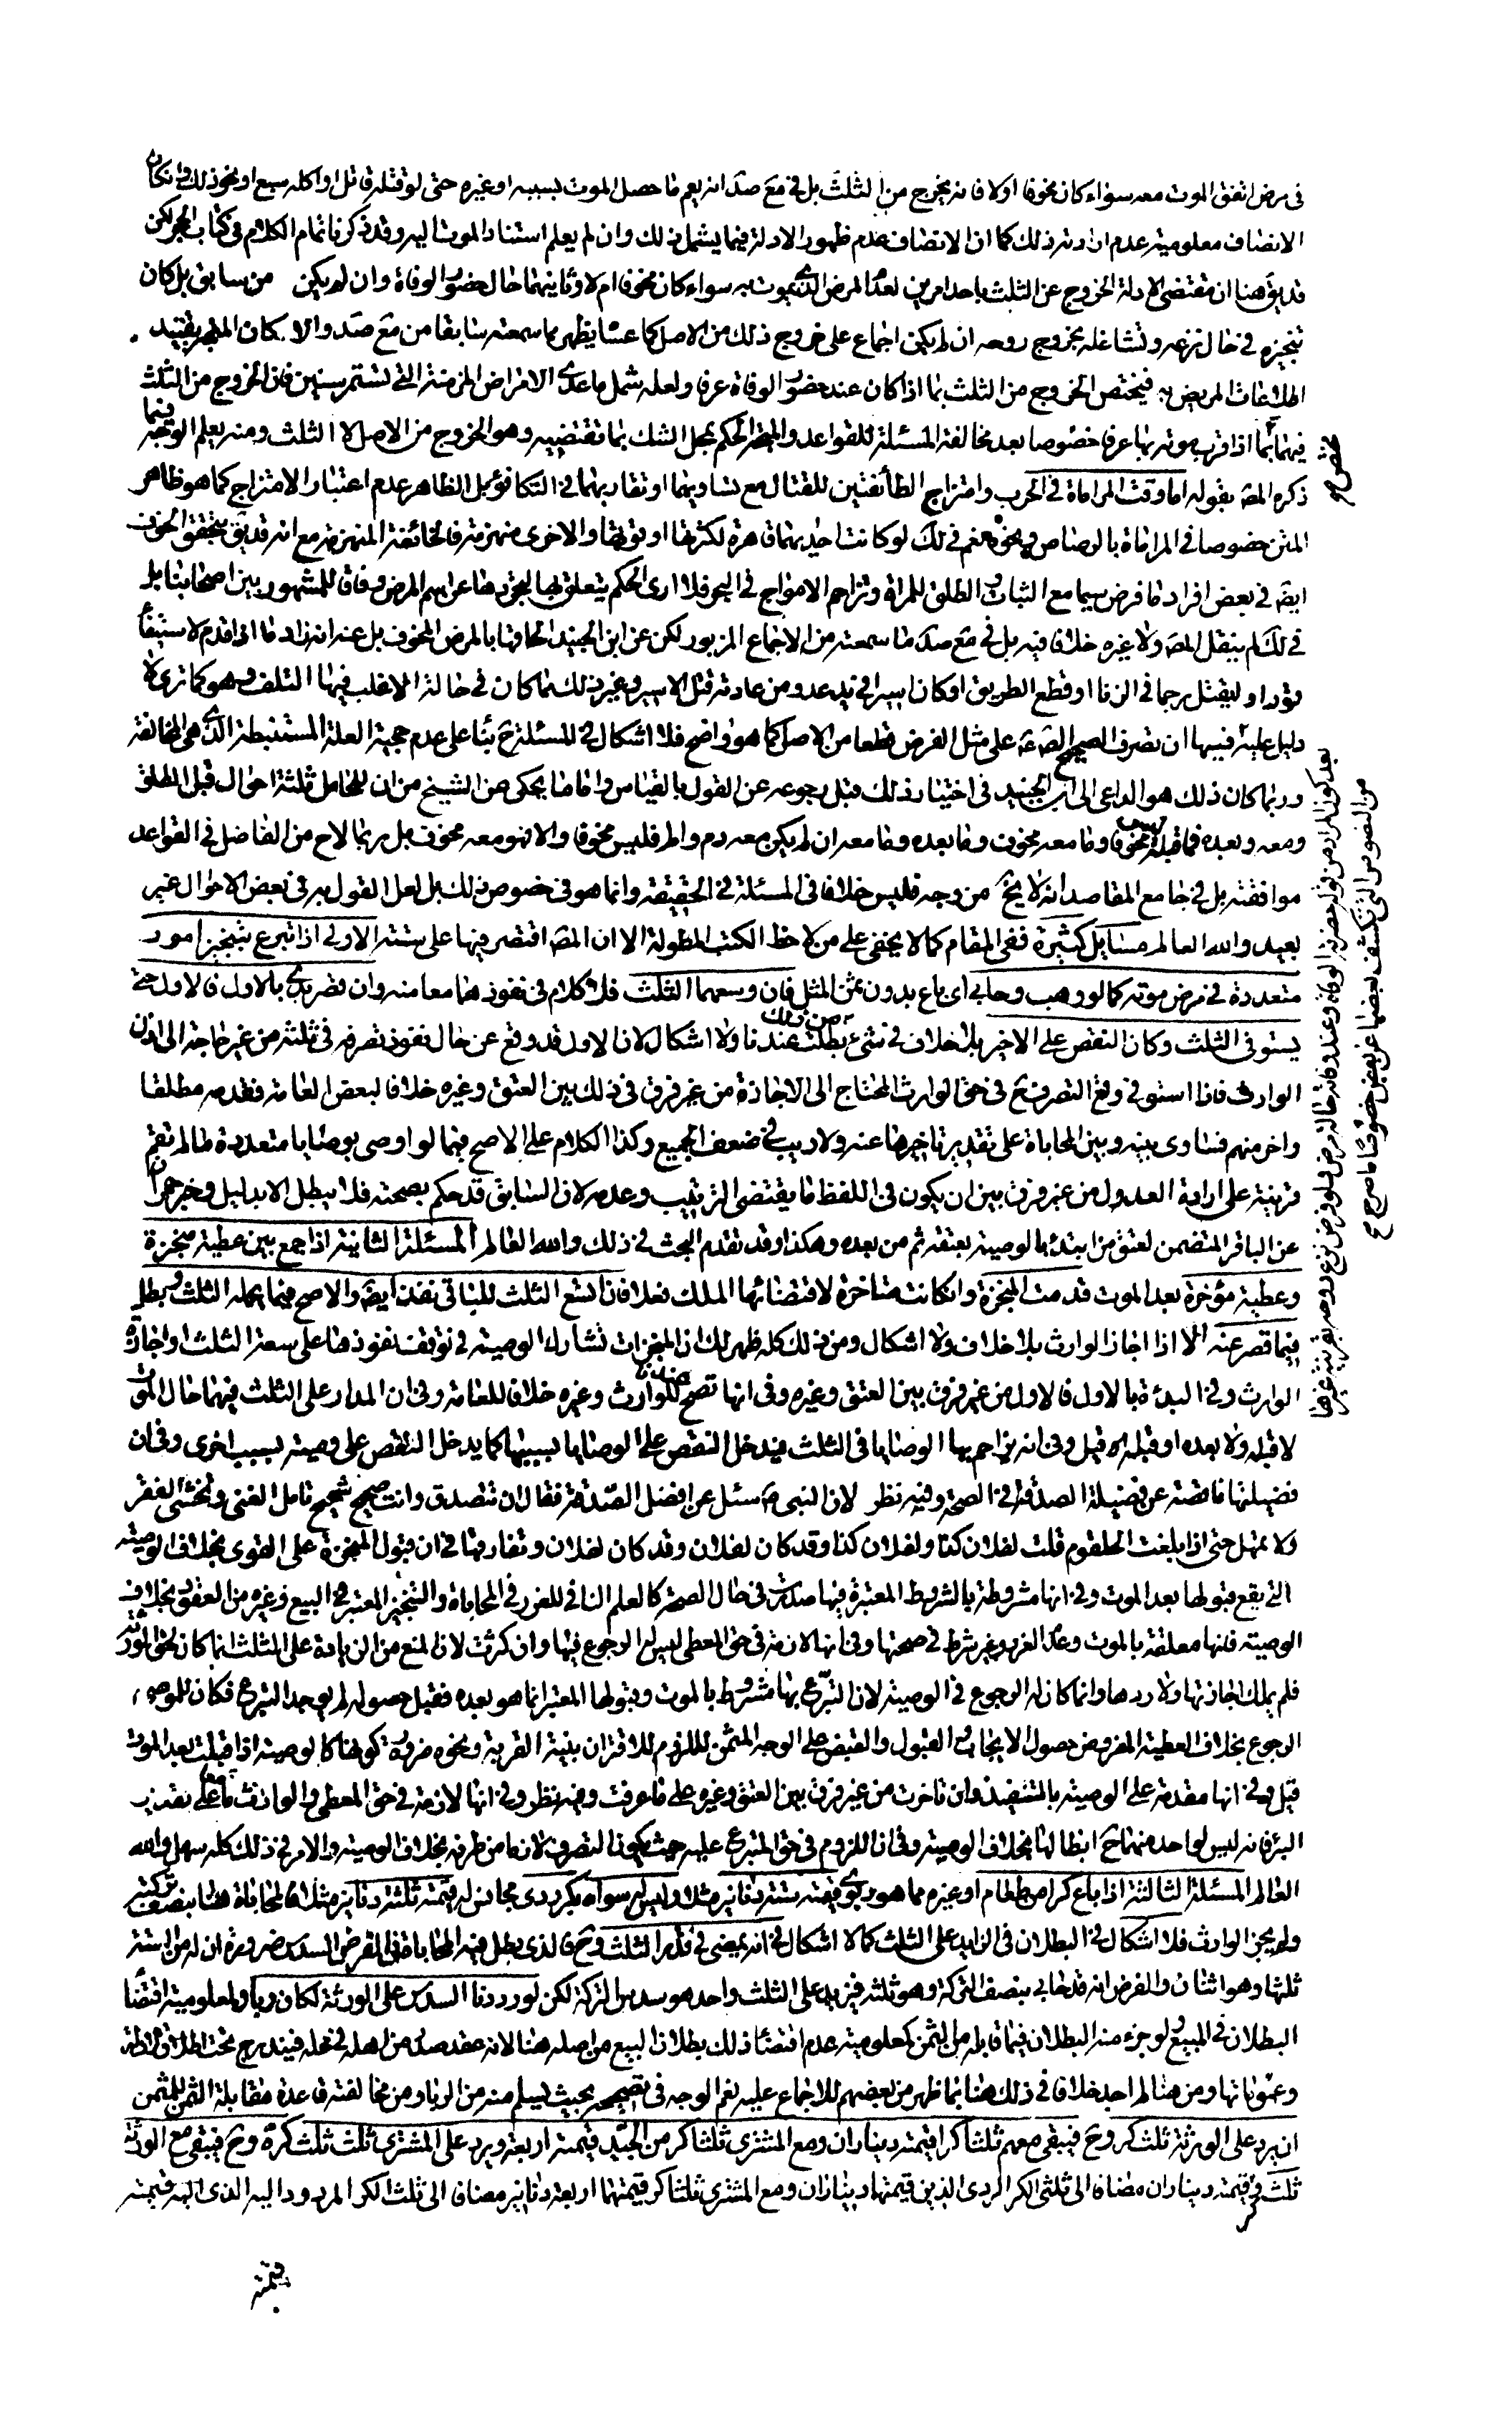 فى مرض اتفق الموت معه سواء كان مخوفا اولا فانه يخرج من الثلث بل فى مع صد انه يعم ما حصل الموت بسببه او غيره حتى لو قتله قاتل او اكله سبع او نحو ذلك وان كان
الانصاف معلومية عدم ارادته ذلك كما ان الانصاف عدم ظهور الادلة فيما يشمل ذلك وان لم يعلم استناد الموت اليه وقد ذكرنا تمام الكلام فى كتاب الحجر لكن
قد يق هنا ان مقتضى الادلة الخروج عن الثلث باحد امرين احدهما المرض الذى يموت به سواء كان مخوفا ام لا وثانيهما حال حضور الوفاة وان لم يكن من سابق بل كان
تنجيزه فى حال نزعه وتشاغله بخروج روحه ان لم يكن اجماع على خروج ذلك من الاصل كما عساه يظهر مما سمعته سابقا من مع صد والا كان المتجه تقييد
اطلاقات المريض به فيختص الخروج من الثلث بما اذا كان عند حضور الوفاة عرفا ولعله يشمل ما عدا الامراض المزمنة التى تستمر سنين فان الخروج من الثلث
فيها بما اذا قرب موته بها عرفا خصوصا بعد مخالفة المسئلة للقواعد والمتجه الحكم بمحل الشك بما تقتضيه وهو الخروج من الاصل لا الثلث ومنه يعلم الوجه فيما
ذكره المص بقوله اما وقت المراماة فى الحرب وامتزاج الطائفتين للقتال مع تساويهما او تقاربهما فى التكافؤ بل الظاهر عدم اعتبار الامتزاج كما هو ظاهر
المتن خصوصا فى المراماة بالرصاص ونحوه نعم فى لك لو كانت احديهما قاهرة لكثرتها او قوتها والاخرى منهزمة فالخائفة المنهزمة مع انه قد يق بتحقق الخوف
ايض فى بعض افراد ما فرض سيما مع الثبات والطلق للمراة وتزاحم الامواج فى البحر فلا ارى الحكم يتعلق بها لتجردها عن اسم المرض وفاقا للمشهور بين اصحابنا بل
فى لك لم ينقل المص ولا غيره خلافا فيه بل فى مع صد ما سمعته من الاجماع المزبور لكن عن ابن الجنيد الحاقها بالمرض المخوف بل عنه انه زاد ما اذا قدم لاستيفاء
قود او ليقتل رجما فى الزنا او قطع الطريق او كان اسيرا فى يد عدو من عادته قتل الاسير وغير ذلك مما كان فى حالة الاغلب فيها التلف وهو كما ترى لا
دليل عليه فيها ان تصرف الصحيح على مثل الفرض قطعا من الاصل كما هو واضح فلا اشكال فى المسئلة ح بناء على عدم حجية العلة المستنبطة الذى هى المخالفة
وربما كان ذلك هو الداعى الى ابن الجنيد فى اختيار ذلك قبل رجوعه عن القول بالقياس واما ما يحكى عن الشيخ من ان للحامل ثلثة احوال قبل الطلق
ومعه وبعده فما قبله ليس مخوفا وما معه مخوف وما بعده وما معه ان لم يكن معه دم والم فليس مخوفا والا فهو معه مخوف بل ربما لاح من الفاضل فى القواعد
موافقته بل فى جامع المقاصد انه لا يخ من وجه فليس خلافا فى المسئلة فى الحقيقة وانما هو فى خصوص ذلك بل لعل القول به فى بعض الاحوال غير
بعيد والله العالم مسايل كثيرة ففى المقام كما لا يخفى على من لاحظ الكتب المطولة الا ان المص اقتصر فيها على ستة الاولى اذا تبرع بتنجيز امور
متعددة فى مرض موته كما لو وهب وحابى اى باع بدون ثمن المثل فان وسعهما الثلث فلا كلام فى نفوذهما معا منه وان قصر بدئ بالاول فالاول حتى
يستوفى الثلث وكان النقص على الاخير بلا خلاف فى شئ من ذلك عندنا ولا اشكال لان الاول قد وقع عن حال نفوذ تصرفه فى ثلثه من غير حاجة الى اذن
الوارث فاذا استوفى وقع التصرف ح فى حق الوارث المحتاج الى الاجازة من غير فرق فى ذلك بين العتق وغيره خلافا لبعض العامة فقدمه مطلقا
واخر منهم فساوى بينه وبين المحاباة على تقدير تاخيرها عنه ولا ريب فى ضعف الجميع وكذا الكلام على الاصح فيما لو اوصى بوصايا متعددة ما لم تقم
قرينة على ارادة العدول من غير فرق بين ان يكون فى اللفظ ما يقتضى الترتيب وعدمه لان السابق قد حكم بصحته فلا يبطل الا بدليل وخبر حمران
عن الباقر المتضمن لعتق من ابتدء بالوصية بعتقه ثم من بعده وهكذا وقد تقدم البحث فى ذلك والله العالم المسئلة الثانية اذا جمع بين عطية منجزة
وعطية مؤخرة بعد الموت قدمت المنجزة وان كانت متاخرة لاقتضائها الملك فعلا فان اتسع الثلث للباقى نفذ ايض والا صح فيما يحمله الثلث وبطل
فيما قصر عنه الا اذا اجاز الوارث بلا خلاف ولا اشكال ومن ذلك كله ظهر لك ان المنجزات تشارك الوصية فى توقف نفوذها على سعة الثلث او اجازة
الوارث وفى البدئة بالاول فالاول من غير فرق بين العتق وغيره وفى انها تصح عندنا للوارث وغيره خلافا للعامة وفى ان المدار على الثلث فيهما حال الموت
لا قبله ولا بعده او قبله لا قبل وفى انه يزاحم بها الوصايا فى الثلث فيدخل النقص على الوصايا بسببها كما يدخل النقص على وصية بسبب اخرى وفى ان
فضيلتها ناقصة عن فضيلة الصدقة فى الصحة وفيه نظر لان النبى ص سئل عن افضل الصدقة فقال ان تتصدق وانت صحيح شحيح تامل الغنى وتخشى الفقر
ولا تمهل حتى اذا بلغت الحلقوم قلت لفلان كذا ولفلان كذا وقد كان لفلان وقد كان لفلان وتفارقها فى ان قبول المنجزة على الفور بخلاف الوصية
التى يقع قبولها بعد الموت وفى انها مشروطة بالشروط المعتبرة فيها اذا صدرت فى حال الصحة كالعلم النافى للغرر فى المحاباة والتنجيز المعتبر فى البيع وغيره من العقود بخلاف
الوصية فانها معلقة بالموت وعدم الغرر غير شرط فى صحتها وفى انها لازمة فى حق المعطى ليس له الرجوع فيها وان كثرت لان المنع من الزيادة على الثلث انما كان لحق الورثة
فلم يملك اجازتها ولا ردها وانما كان له الرجوع فى الوصية لان التبرع بها مشروط بالموت وقبولها المعتبر انما هو بعده فقبل حصوله لم يوجد التبرع فكان للموصى
الرجوع بخلاف العطية المفروض حصول الايجاب والقبول والقبض على الوجه المثمر للزوم للاقتران بنية القربة ونحوه ضرورة كونها كالوصية اذا قبلت بعد الموت
قيل وفى انها مقدمة على الوصية بالتنفيذ وان تاخرت من غير فرق بين العتق وغيره على ما عرفت وفيه نظر وفى انها لازمة فى حق المعطى والوارث معا على تقدير
البرء فانه ليس لواحد منهما ح ابطالها بخلاف الوصية وفى ان اللزوم فى حق المتبرع عليه حيث يكون التصرف لازما من طرفه بخلاف الوصية والامر فى ذلك كله سهل والله
العالم المسئلة الثالثة اذا باع كرا من طعام او غيره مما هو ربوى قيمته ستة دنانير مثلا وليس له سواه بكر ردى مجانس له قيمته ثلثة دنانير مثلا فالمحاباة هنا بنصف تركته
ولم يجز الوارث فلا اشكال فى البطلان فى الزايد على الثلث كما لا اشكال فى انه يمضى فى قدر الثلث وح فالذى يبطل فيه المحاباة فى الفرض السدس ضرورة ان له من الستة
ثلثها وهو اثنان والفرض انه قد حابى بنصف التركة وهو ثلثة فيزيد على الثلث واحد هو سدس التركة لكن لو رددنا السدس على الورثة لكان ربا ولمعلومية اقتضاء
البطلان فى المبيع ولو جزء منه البطلان فيما قابله من الثمن كمعلومية عدم اقتضاء ذلك بطلان البيع من اصله هنا لانه عقد صدر من اهله فى محله فيندرج تحت اطلاق الادلة
وعموماتها ومن هنا لم اجد خلافا فى ذلك هنا بل ظهر من بعضهم الاجماع عليه نعم الوجه فى تصحيحه بحيث يسلم منه من الربا ومن مخالفته قاعدة مقابلة الثمن للمثمن
ان يرد على الورثة ثلث كر وح فيبقى معهم ثلثا كر قيمته ديناران ومع المشترى ثلثا كر من الجيد قيمته اربعة ويرد على المشترى ثلث كره وح فيبقى مع الورثة
ثلث كر قيمته ديناران مضافا الى ثلثى الكر الردى الذين قيمتهما ديناران ومع المشترى ثلثا كر قيمتهما اربعة دنانير مضافا الى ثلث الكر المردود اليه الذى قيمته
قيمته
بعد كون المراد من قوله حضرته الوفاة وعند وفاته حالة مرض ولو فرض نزع روحه بقرينة غيرها
من النصوص التى تكشف بعضها عن بعض خصوصا ما صرح